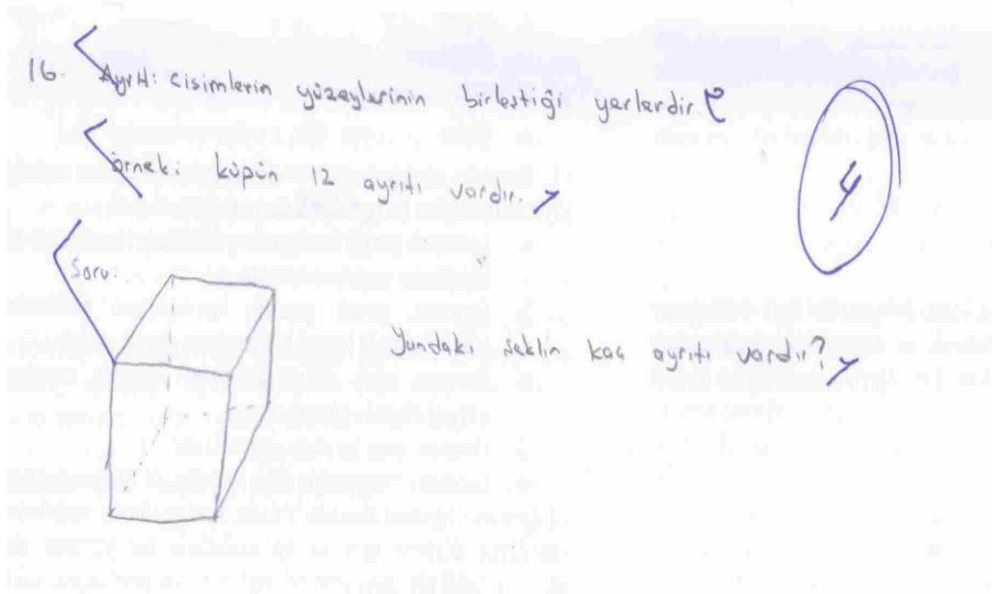 16. Ayrıt: cisimlerin yüzeylerinin birleştiği yerlerdir.
örnek: küpün 12 ayrıtı vardır.
Soru:
Yandaki şeklin kaç ayrıtı vardır?
4